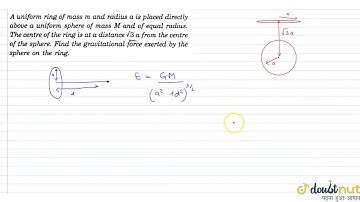 A uniform ring of mass m and radius a is placed directly
above a uniform sphere of mass M and of equal radius.
The centre of the ring is at a distance √3 a from the centre
of the sphere. Find the gravitational force exerted by the
sphere on the ring.
a
√3a
a
a
d
E = GM
(a² + d²)^3/2
doubtnut
पढ़ना हुआ आसान